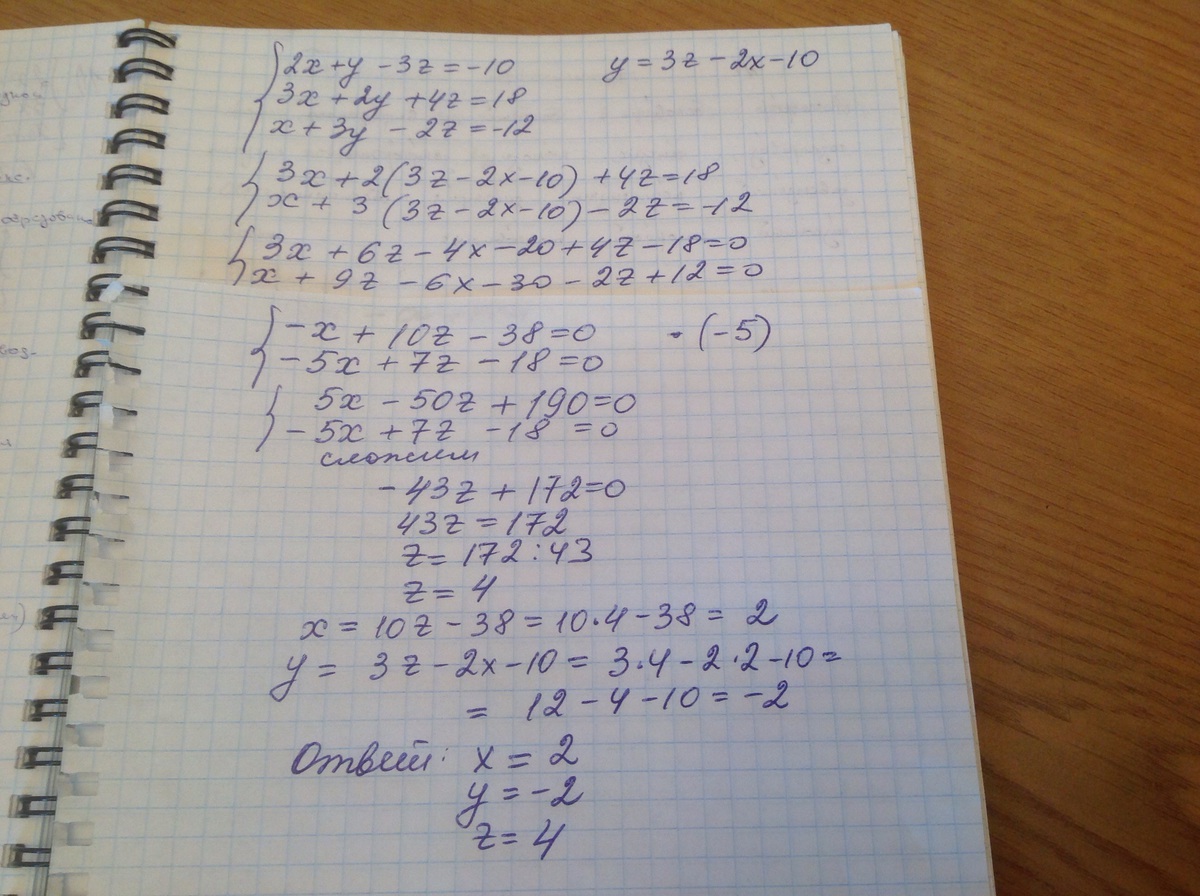 2x+y-3z=-10 y=3z-2x-10
3x+2y+4z=18
x+3y-2z=-12
3x+2(3z-2x-10)+4z=18
x+3(3z-2x-10)-2z=-12
3x+6z-4x-20+4z-18=0
x+9z-6x-30-2z+12=0
-x+10z-38=0 ·(-5)
-5x+7z-18=0
5x-50z+190=0
-5x+7z-18=0
сложим
-43z+172=0
43z=172
z=172:43
z=4
x=10z-38=10·4-38=2
y=3z-2x-10=3·4-2·2-10=
=12-4-10=-2
Ответ: x=2
y=-2
z=4